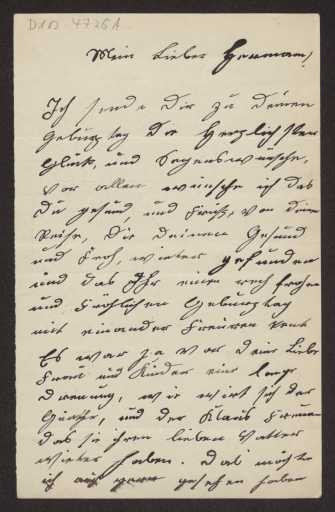 D1B 4726A
Mein lieber Hermann!
Ich sende Dir zu deinen
Geburztag Die Herzlichsten
Glück, und Segenswünsche,
vor allem wünsche ich das
Du gesund, und frisch, von deiner
Reise, Die deinen Gesund
und froh, wieder gefunden
und das Ihr einen rech frohen
und Fröhlichen Geburztag
mit einander
Es war ja vor deine liebe
Frau und Kinder eine lange
Trennung, wie wirt sich der
und der Klaus freuen
das sie ihren lieben Vatter
wieder haben. Das möchte
ich auch gern gesehen haben